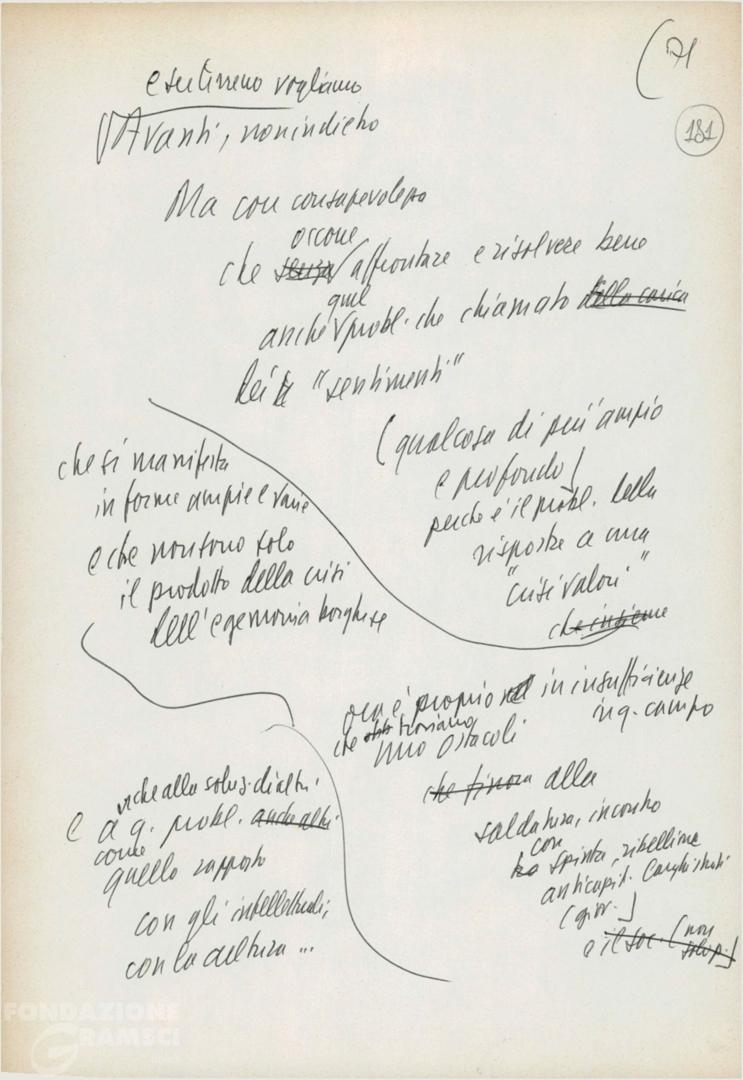 (71
181
e su Tirreno vogliamo
Avanti, non indietro
Ma con consapevolezza
occorre
che senza affrontare e risolvere bene
quel
anche probl. che chiamato della carica
dei "sentimenti"
(qualcosa di più ampio
e profondo)
perché è il probl. della
risposta a una
"crisi valori"
che insieme
che si manifesta
in forme ampie e varie
e che non sono solo
il prodotto della crisi
dell'egemonia borghese
ora è proprio in insufficienze
in q. campo
che troviamo
uno ostacoli
che finora alla
saldatura, incontro
con
spinta, ribellione
anticapit. larghi strati
(giov.)
e il soc. (non
solo p.)
anche alla soluz. di altri
e a q. probl. anche altri
come
quello rapporto
con gli intellettuali,
con la cultura ...
FONDAZIONE
GRAMSCI